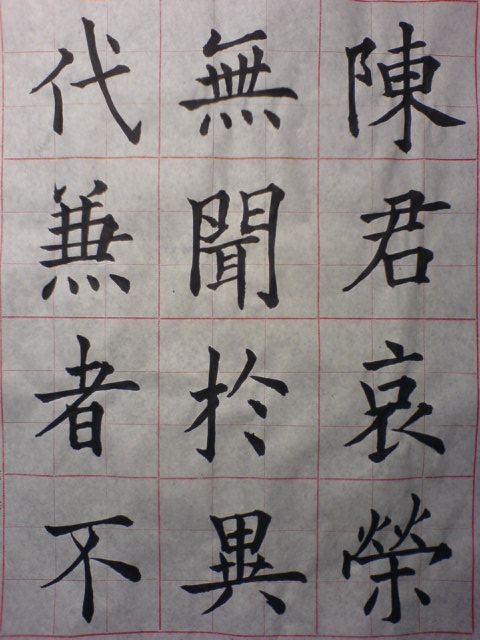 陳君哀榮
無聞於異
代兼者不